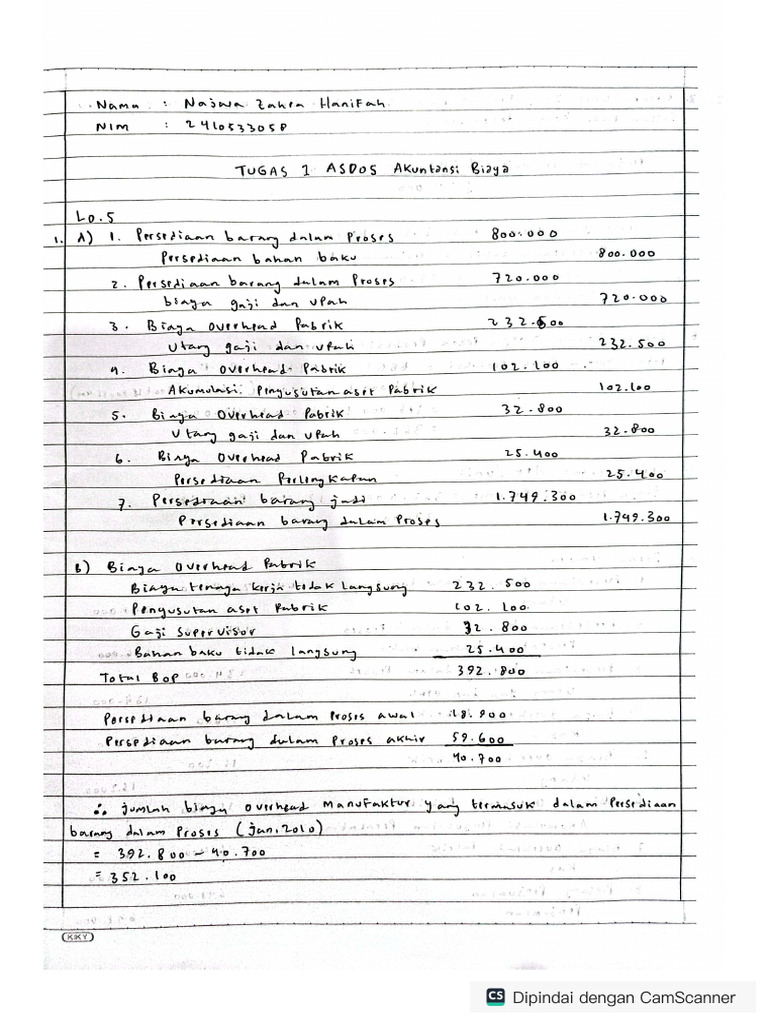 Nama : Najwa Zahra Hanifah
NIM : 2410533058
TUGAS 1 ASDOS Akuntansi Biaya
LO.5
1. A) 1. Persediaan barang dalam Proses 800.000
Persediaan bahan baku 800.000
2. Persediaan barang dalam Proses 720.000
biaya gaji dan upah 720.000
3. Biaya overhead Pabrik 232.500
Utang gaji dan upah 232.500
4. Biaya overhead Pabrik 102.100
Akumulasi Penyusutan aset Pabrik 102.100
5. Biaya Overhead Pabrik 32.800
Utang gaji dan upah 32.800
6. Biaya Overhead Pabrik 25.400
Persediaan Perlengkapan 25.400
7. Persediaan barang jadi 1.749.300
Persediaan barang dalam Proses 1.749.300
B) Biaya Overhead Pabrik
Biaya tenaga kerja tidak langsung 232.500
Penyusutan aset Pabrik 102.100
Gaji Supervisor 32.800
Bahan baku tidak langsung 25.400
Total BOP 392.800
Persediaan barang dalam Proses awal 18.900
Persediaan barang dalam Proses akhir 59.600
40.700
∴ jumlah biaya overhead manufaktur yang termasuk dalam Persediaan
barang dalam Proses (jan, 2010)
= 392.800 - 40.700
= 352.100
KIKY
CS Dipindai dengan CamScanner